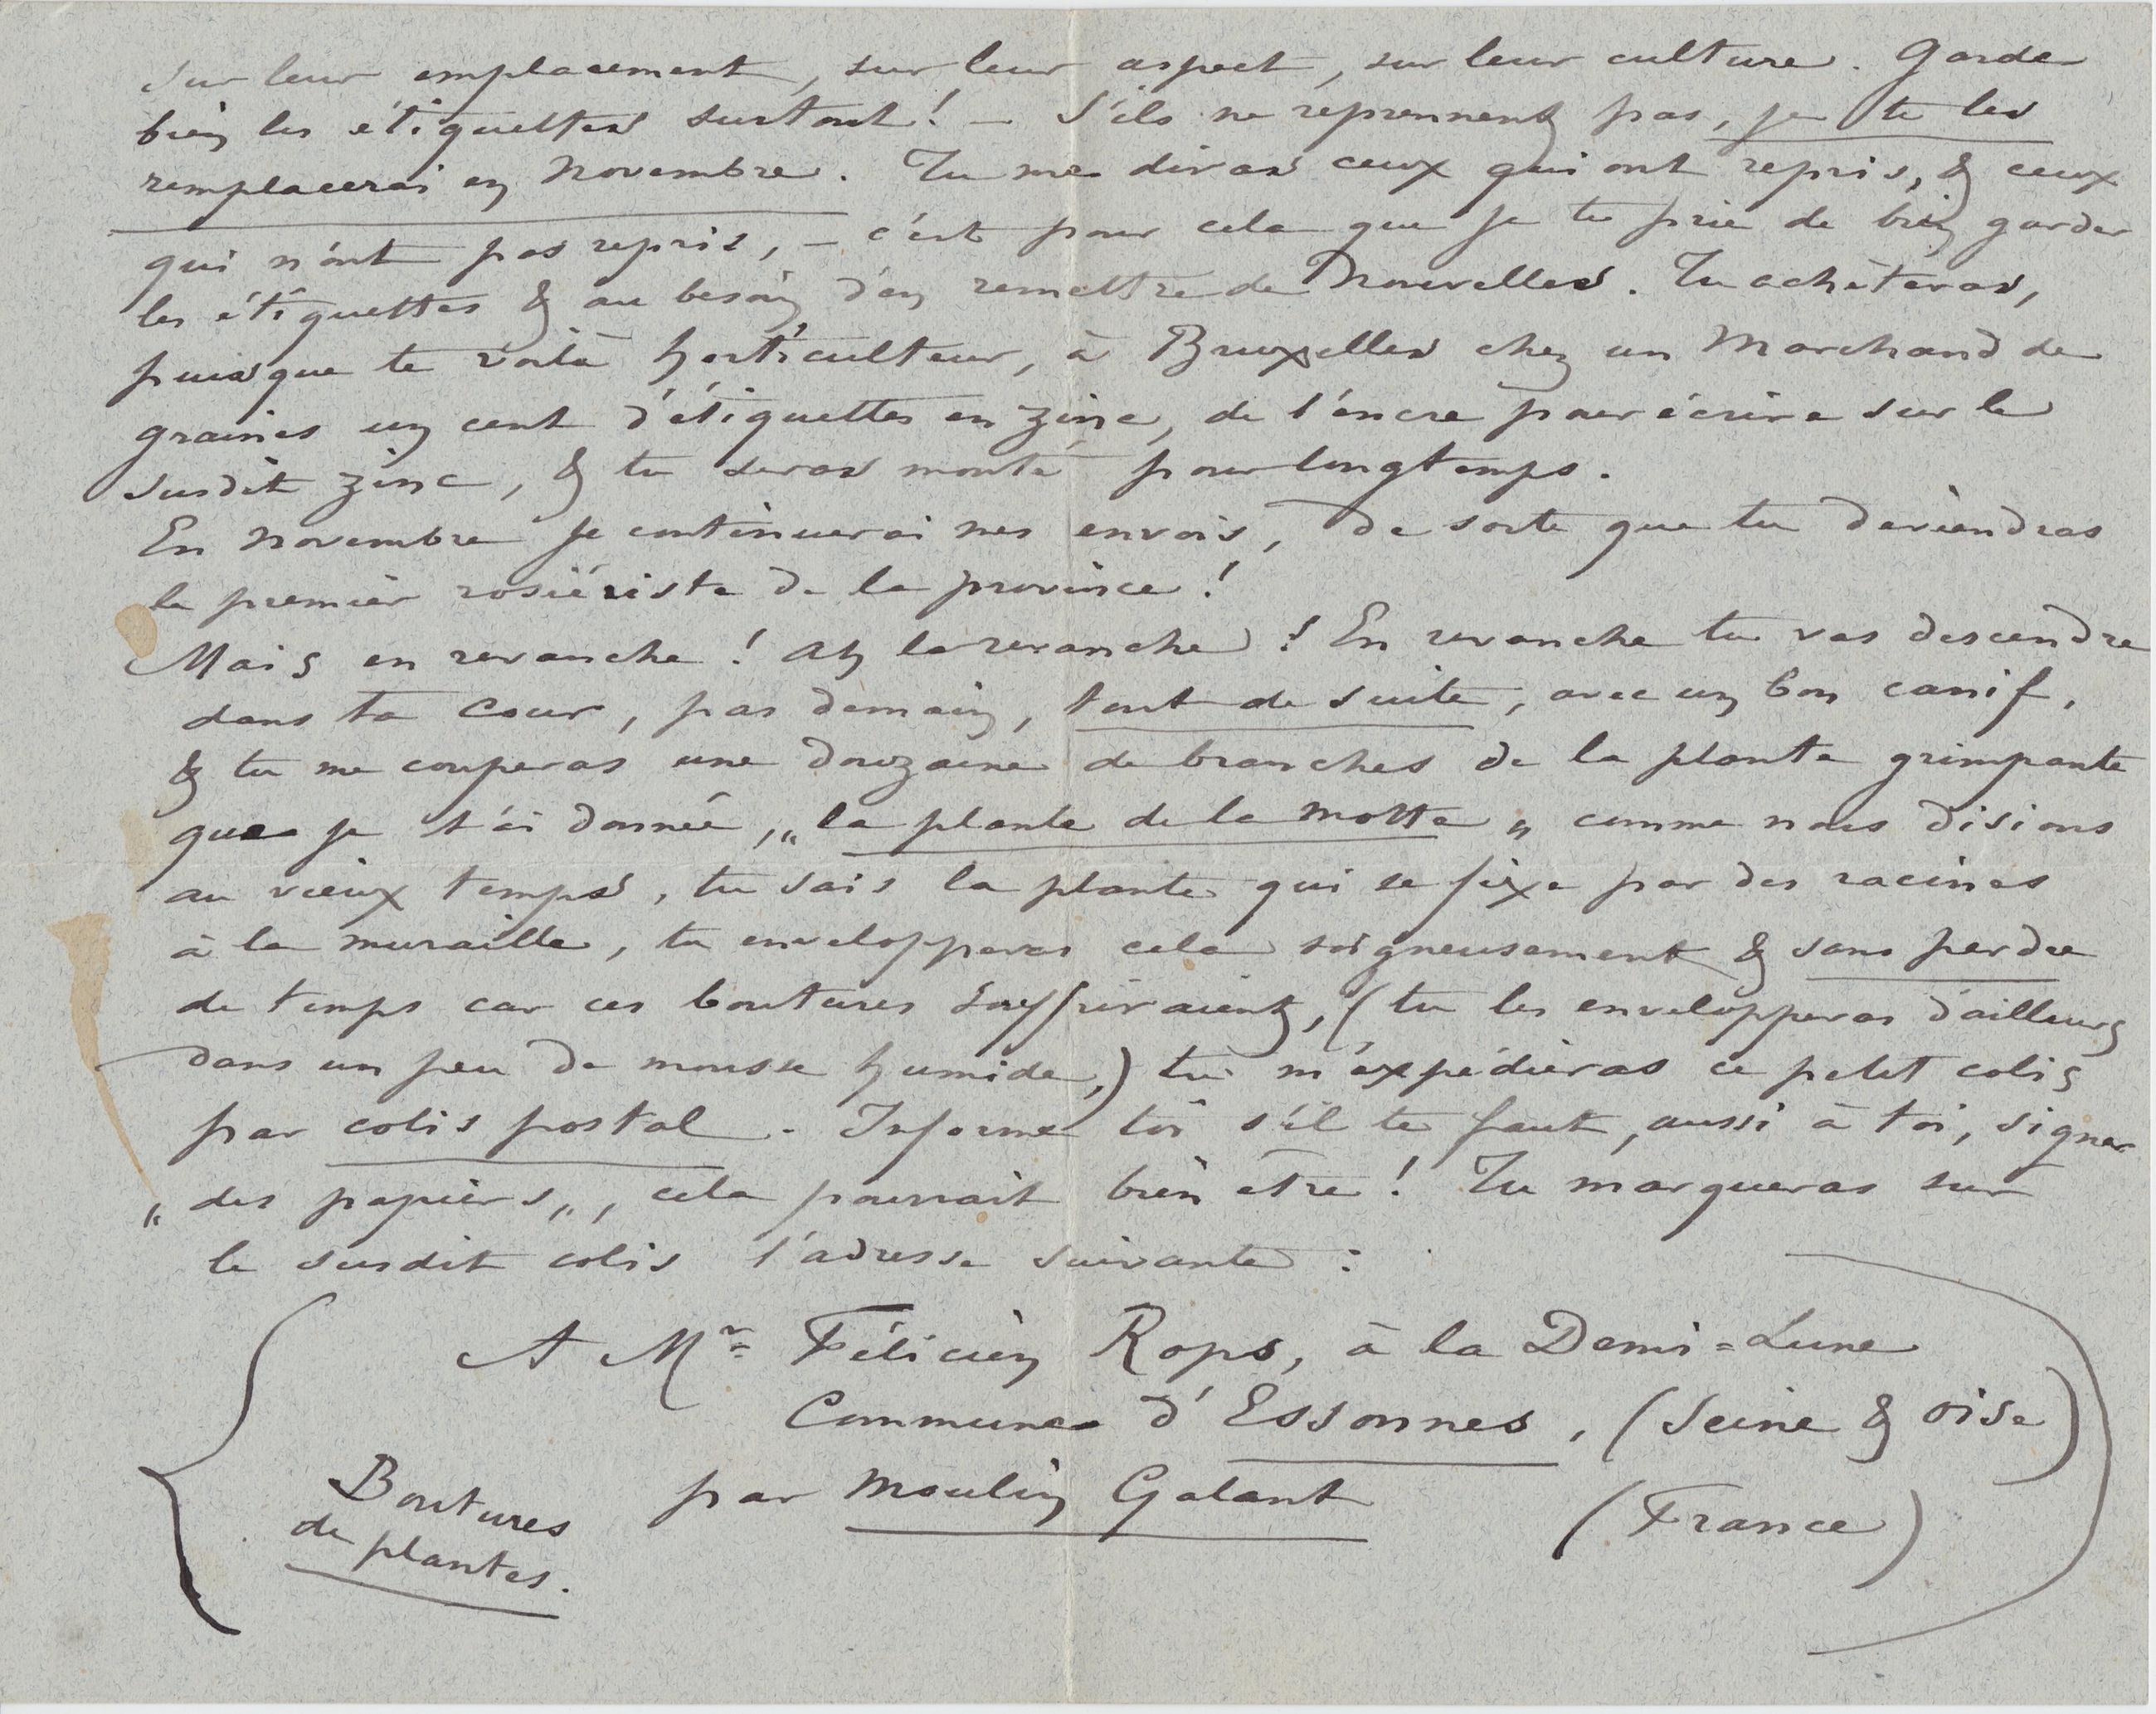 sur leur emplacement, sur leur aspect, sur leur culture. Garde
bien les étiquettes surtout! – S'ils ne reprennent pas, je te les
remplacerai en Novembre. Tu me diras ceux qui ont repris, & ceux
qui n'ont pas repris, – c'est pour cela que je te prie de bien garder
les étiquettes & au besoin d'en remettre de Nouvelles. Tu achèteras,
puisque te voilà horticulteur, à Bruxelles chez un Marchand de
graines un cent d'étiquettes en zinc, de l'encre pour écrire sur le
susdit zinc, & tu seras monté pour longtemps.
En Novembre je continuerai mes envois, de sorte que tu deviendras
le premier rosiériste de la province!
Mais en revanche! Ah la revanche! En revanche tu vas descendre
dans ta cour, pas demain, tout de suite, avec un bon canif,
& tu me couperas une douzaine de branches de la plante grimpante
que je t'ai donnée, „la plante de la Motte„ comme nous disions
au vieux temps, tu sais la plante qui se fixe par des racines
à la muraille, tu envelopperas cela soigneusement & sans perdre
de temps car ces boutures souffriraient, (tu les envelopperas d'ailleurs
dans un peu de mousse humide,) tu m'expédieras ce petit colis
par colis postal. Informe toi s'il te faut, aussi à toi, signer
„des papiers„, cela pourrait bien être! Tu marqueras sur
le susdit colis l'adresse suivante:
A Mr Félicien Rops, à la Demi=Lune
Commune d'Essonnes, (Seine & Oise)
par Moulin Galant (France)
Boutures
de plantes.